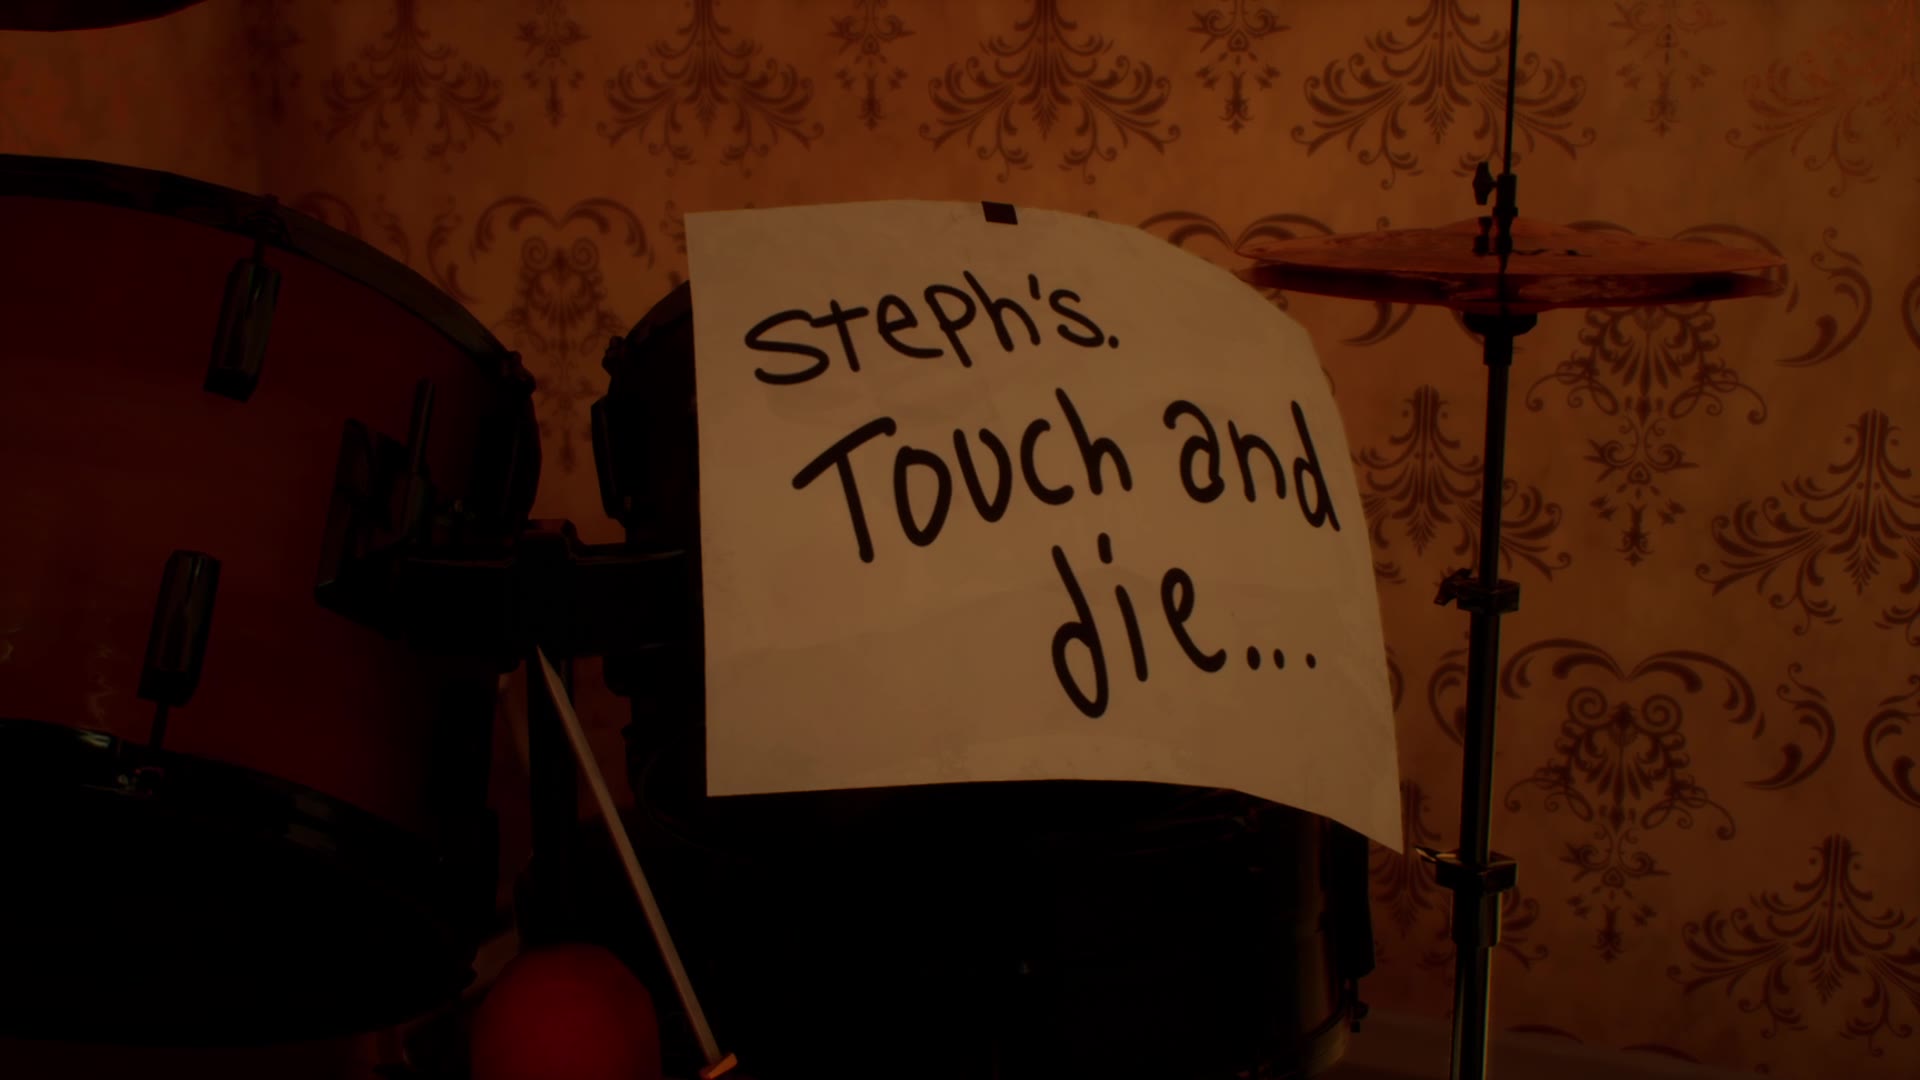 Steph's.
Touch and
die...